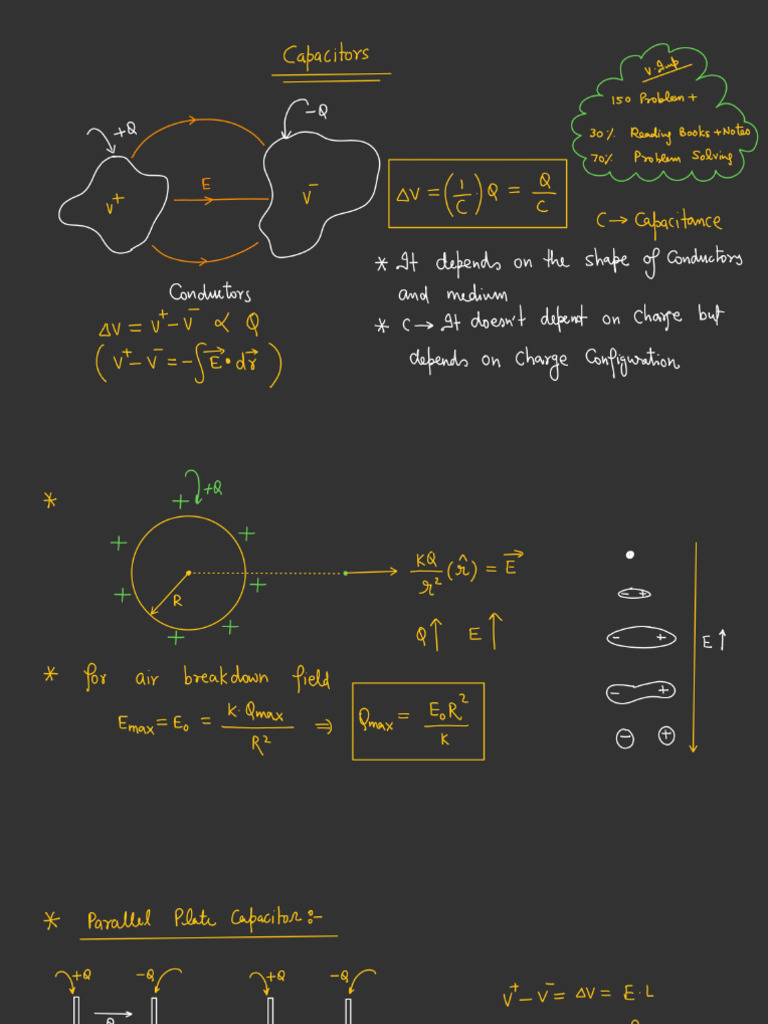 Capacitors
V. Imp
150 Problem +
30% Reading Books + Notes
70% Problem Solving
+Q
-Q
E
V⁺
V⁻
ΔV = (1/C)·Q = Q/C
C → Capacitance
* It depends on the shape of Conductors
and medium
* C → It doesn't depend on Charge but
depends on Charge Configuration
Conductors
ΔV = V⁺ - V⁻ ∝ Q
(V⁺ - V⁻ = -∫E⃗ • dr⃗)
*
+Q
+ + + + + + +
R
KQ/r² (r̂) = E⃗
Q↑ E↑
- +
- +
- +
- +
E↑
* for air breakdown field
Emax = E₀ = K·Qmax/R² ⇒ Qmax = E₀R²/K
* Parallel Plate Capacitor:-
+Q -Q +Q -Q
V⁺ - V⁻ = ΔV = E·L